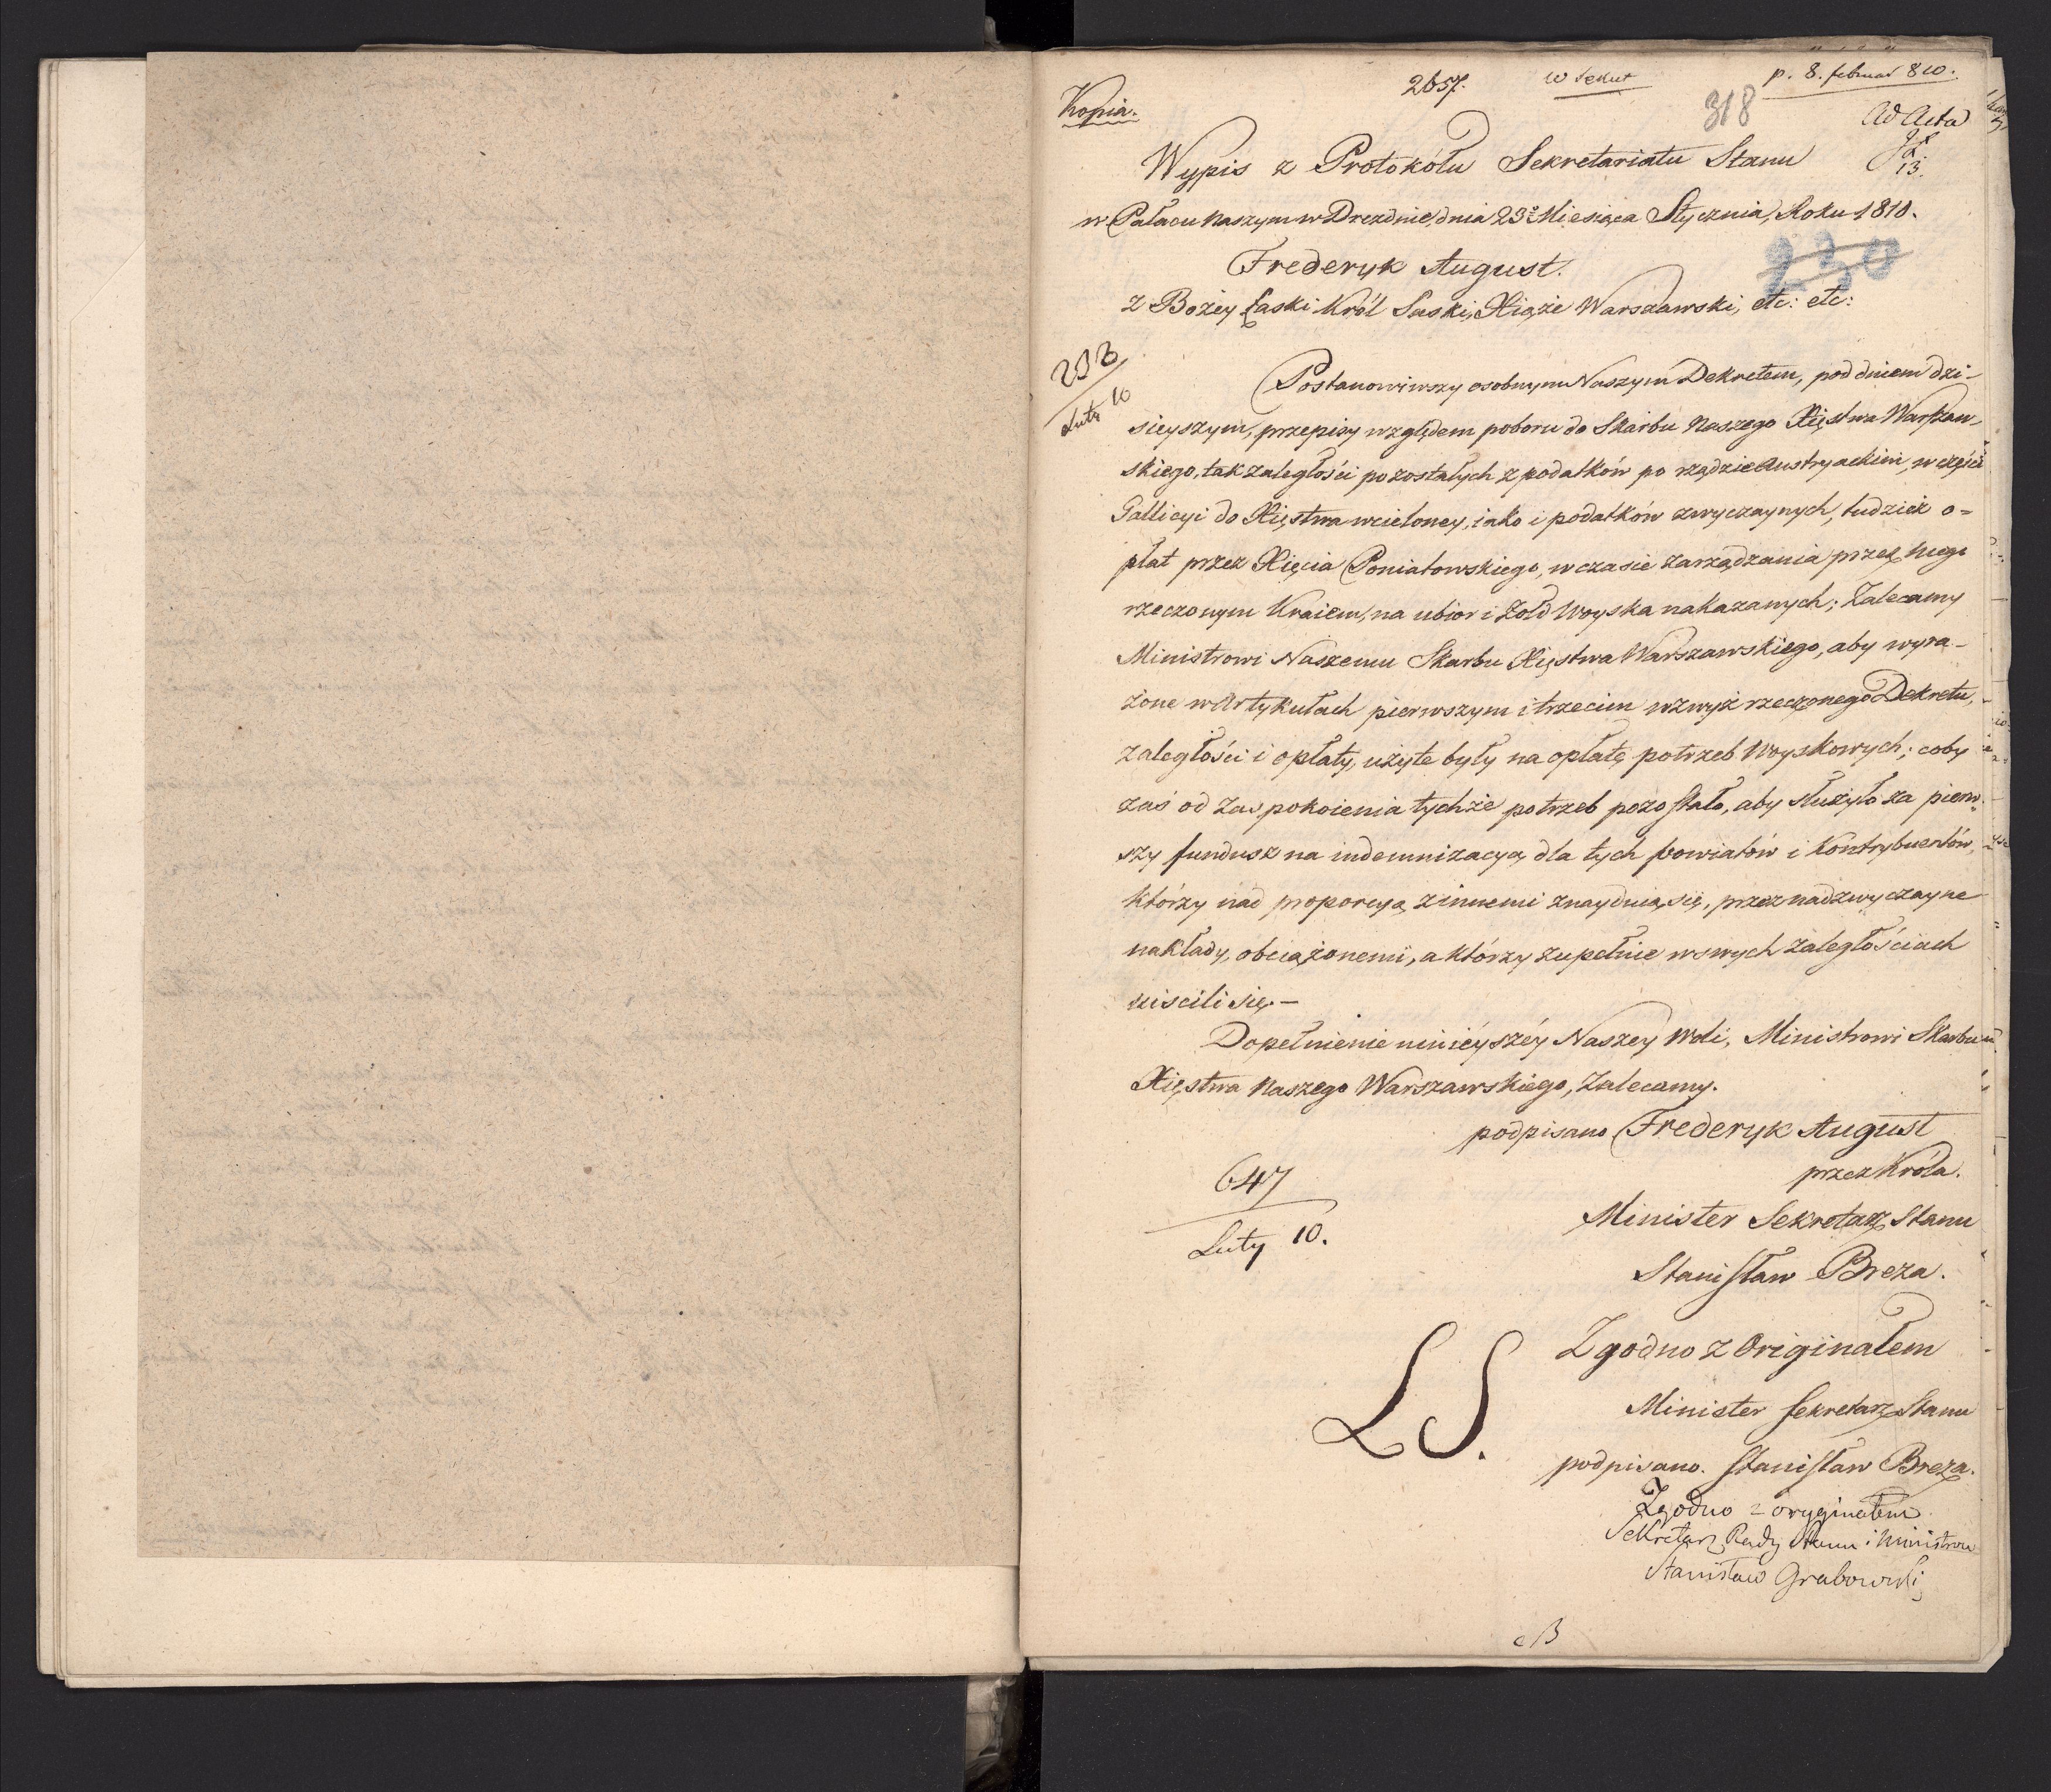 Kopia.
2657.
w Sekret
p. 8. februar 810.
318
Ad Acta
13.
Wypis z Protokółu Sekretariatu Stanu
w Pałacu Naszym w Dreznie, dnia 23º Miesiąca Stycznia, Roku 1810.
230
Frederyk August.
z Bożey Łaski Król Saski, Xiąże Warszawski, etc: etc:
233
Luty 10
Postanowiwszy osobnym Naszym Dekretem, pod dniem dzi-
sieyszym, przepisy względem poboru do Skarbu Naszego Xięstwa Warszaw-
skiego, tak zaległości pozostałych z podatków po rządzie Austryackim, w części
Gallicyi do Xięstwa wcieloney, iako i podatków zwyczaynych, tudzież o=
płat przez Xięcia Poniatowskiego, w czasie zarządzania przez niego
rzeczonym Kraiem, na ubior i żołd Woyska nakazanych; Zalecamy
Ministrowi Naszemu Skarbu Xięstwa Warszawskiego, aby wyra-
żone w Artykułach pierwszym i trzecim wzwyż rzeczonego Dekretu,
zaległości i opłaty, użyte były na opłatę potrzeb Woyskowych; coby
zaś od zaspokoienia tychże potrzeb pozostało, aby służyło za pierw-
szy fundusz na indemnizacyą dla tych powiatów i Kontrybuentów,
którzy nad proporcyą z innemi znayduią się, przez nadzwyczayne
nakłady, obciążonemi, a którzy zupełnie w swych zaległościach
uiscili się.—
Dopełnienie ninieyszéy Naszey Woli, Ministrowi Skarbu
Xięstwa Naszego Warszawskiego, Zalecamy.
podpisano Frederyk August
przez Króla.
647
Luty 10.
Minister Sekretarz Stanu
Stanisław Breza.
LS.
Zgodno z Originałem
Minister Sekretarz Stanu
podpisano. Stanisław Breza.
Zgodno z oryginałem
Sekretarz Rady Stanu i Ministrow
Stanisław Grabowski